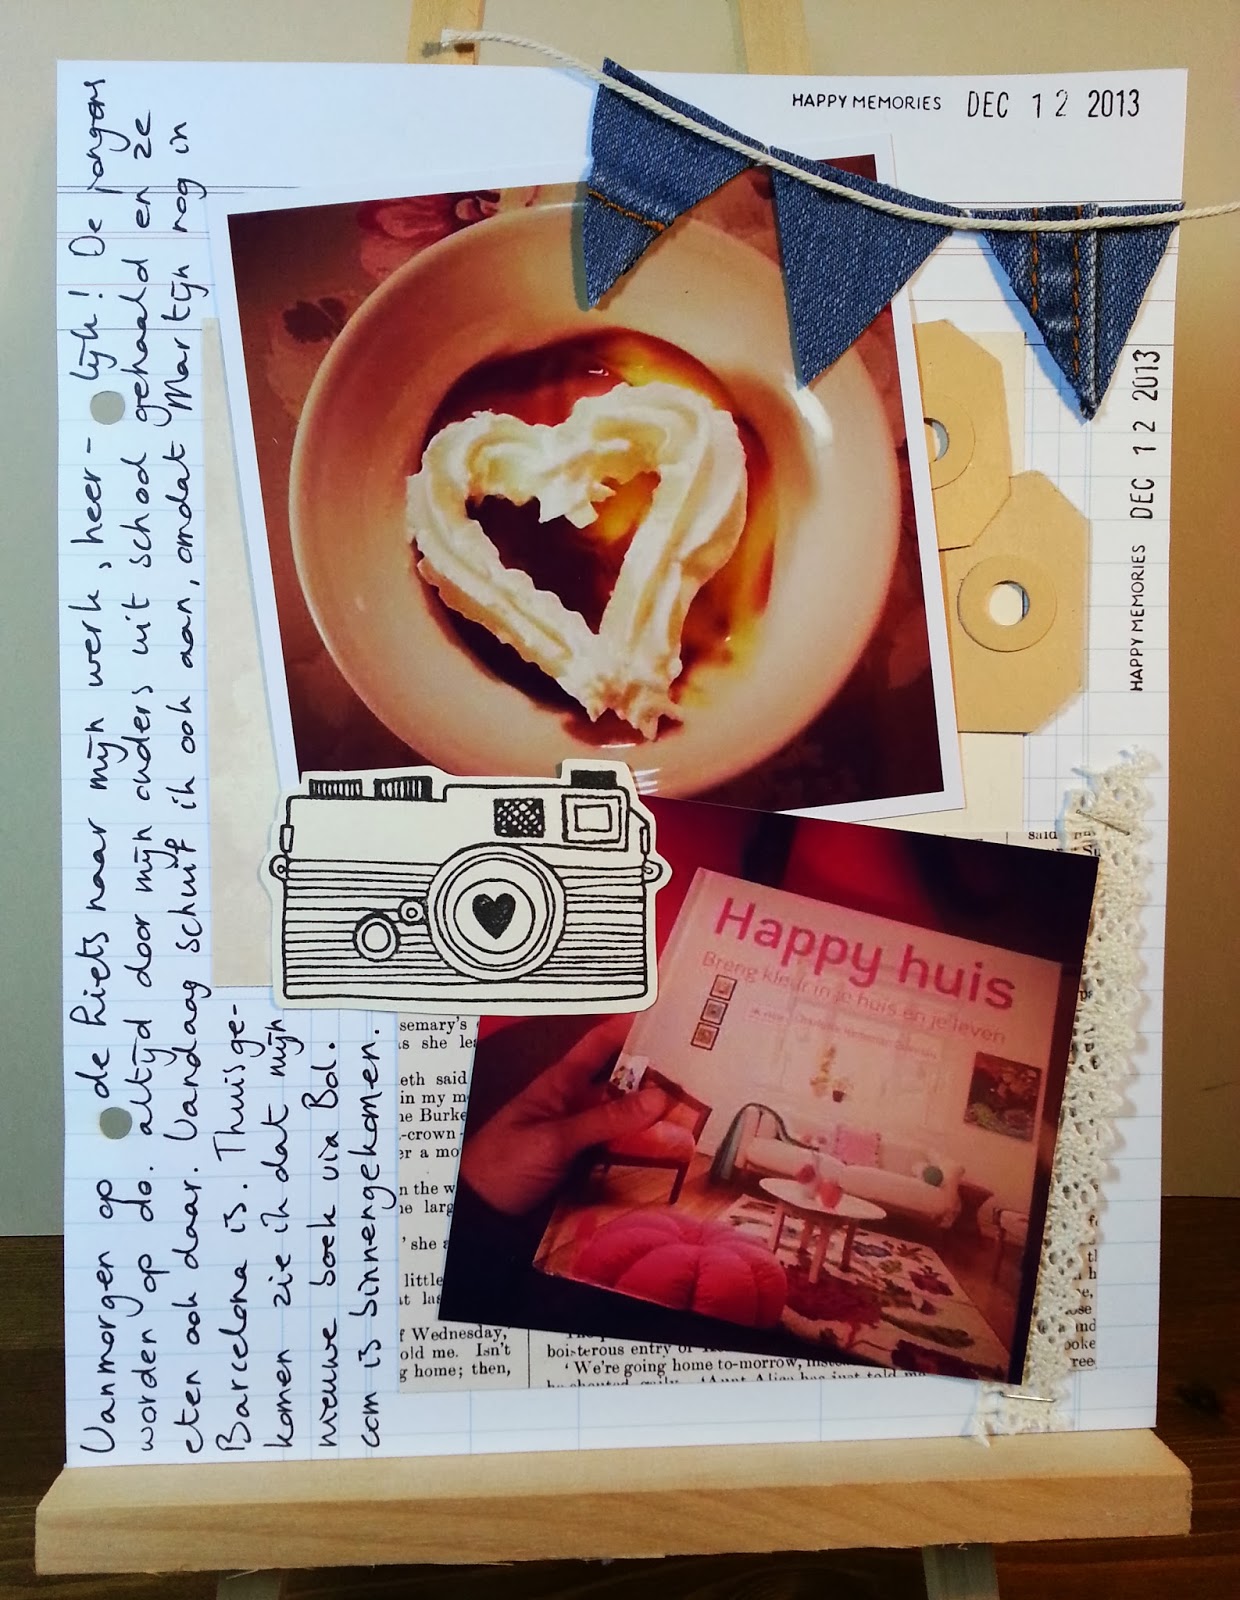 HAPPY MEMORIES DEC 12 2013
HAPPY MEMORIES DEC 12 2013
Vanmorgen op de fiets naar mijn werk, heer-lijk! De jongens
worden op do. altijd door mijn ouders uit school gehaald en ze
eten ook daar. Vandaag schuif ik ook aan, omdat Martijn nog in
Barcelona is. Thuisge-
komen zie ik dat mijn
nieuwe boek via Bol.
com is binnengekomen.
Happy huis
Breng kleur in je huis en je leven
said
semary's
s she
eth said
in my
he Burke
-crown
er a
n the
larg
'she
little
at las
f Wednesday,
old me. Isn't
g home; then,
boisterous entry of
'We're going home to-morrow,